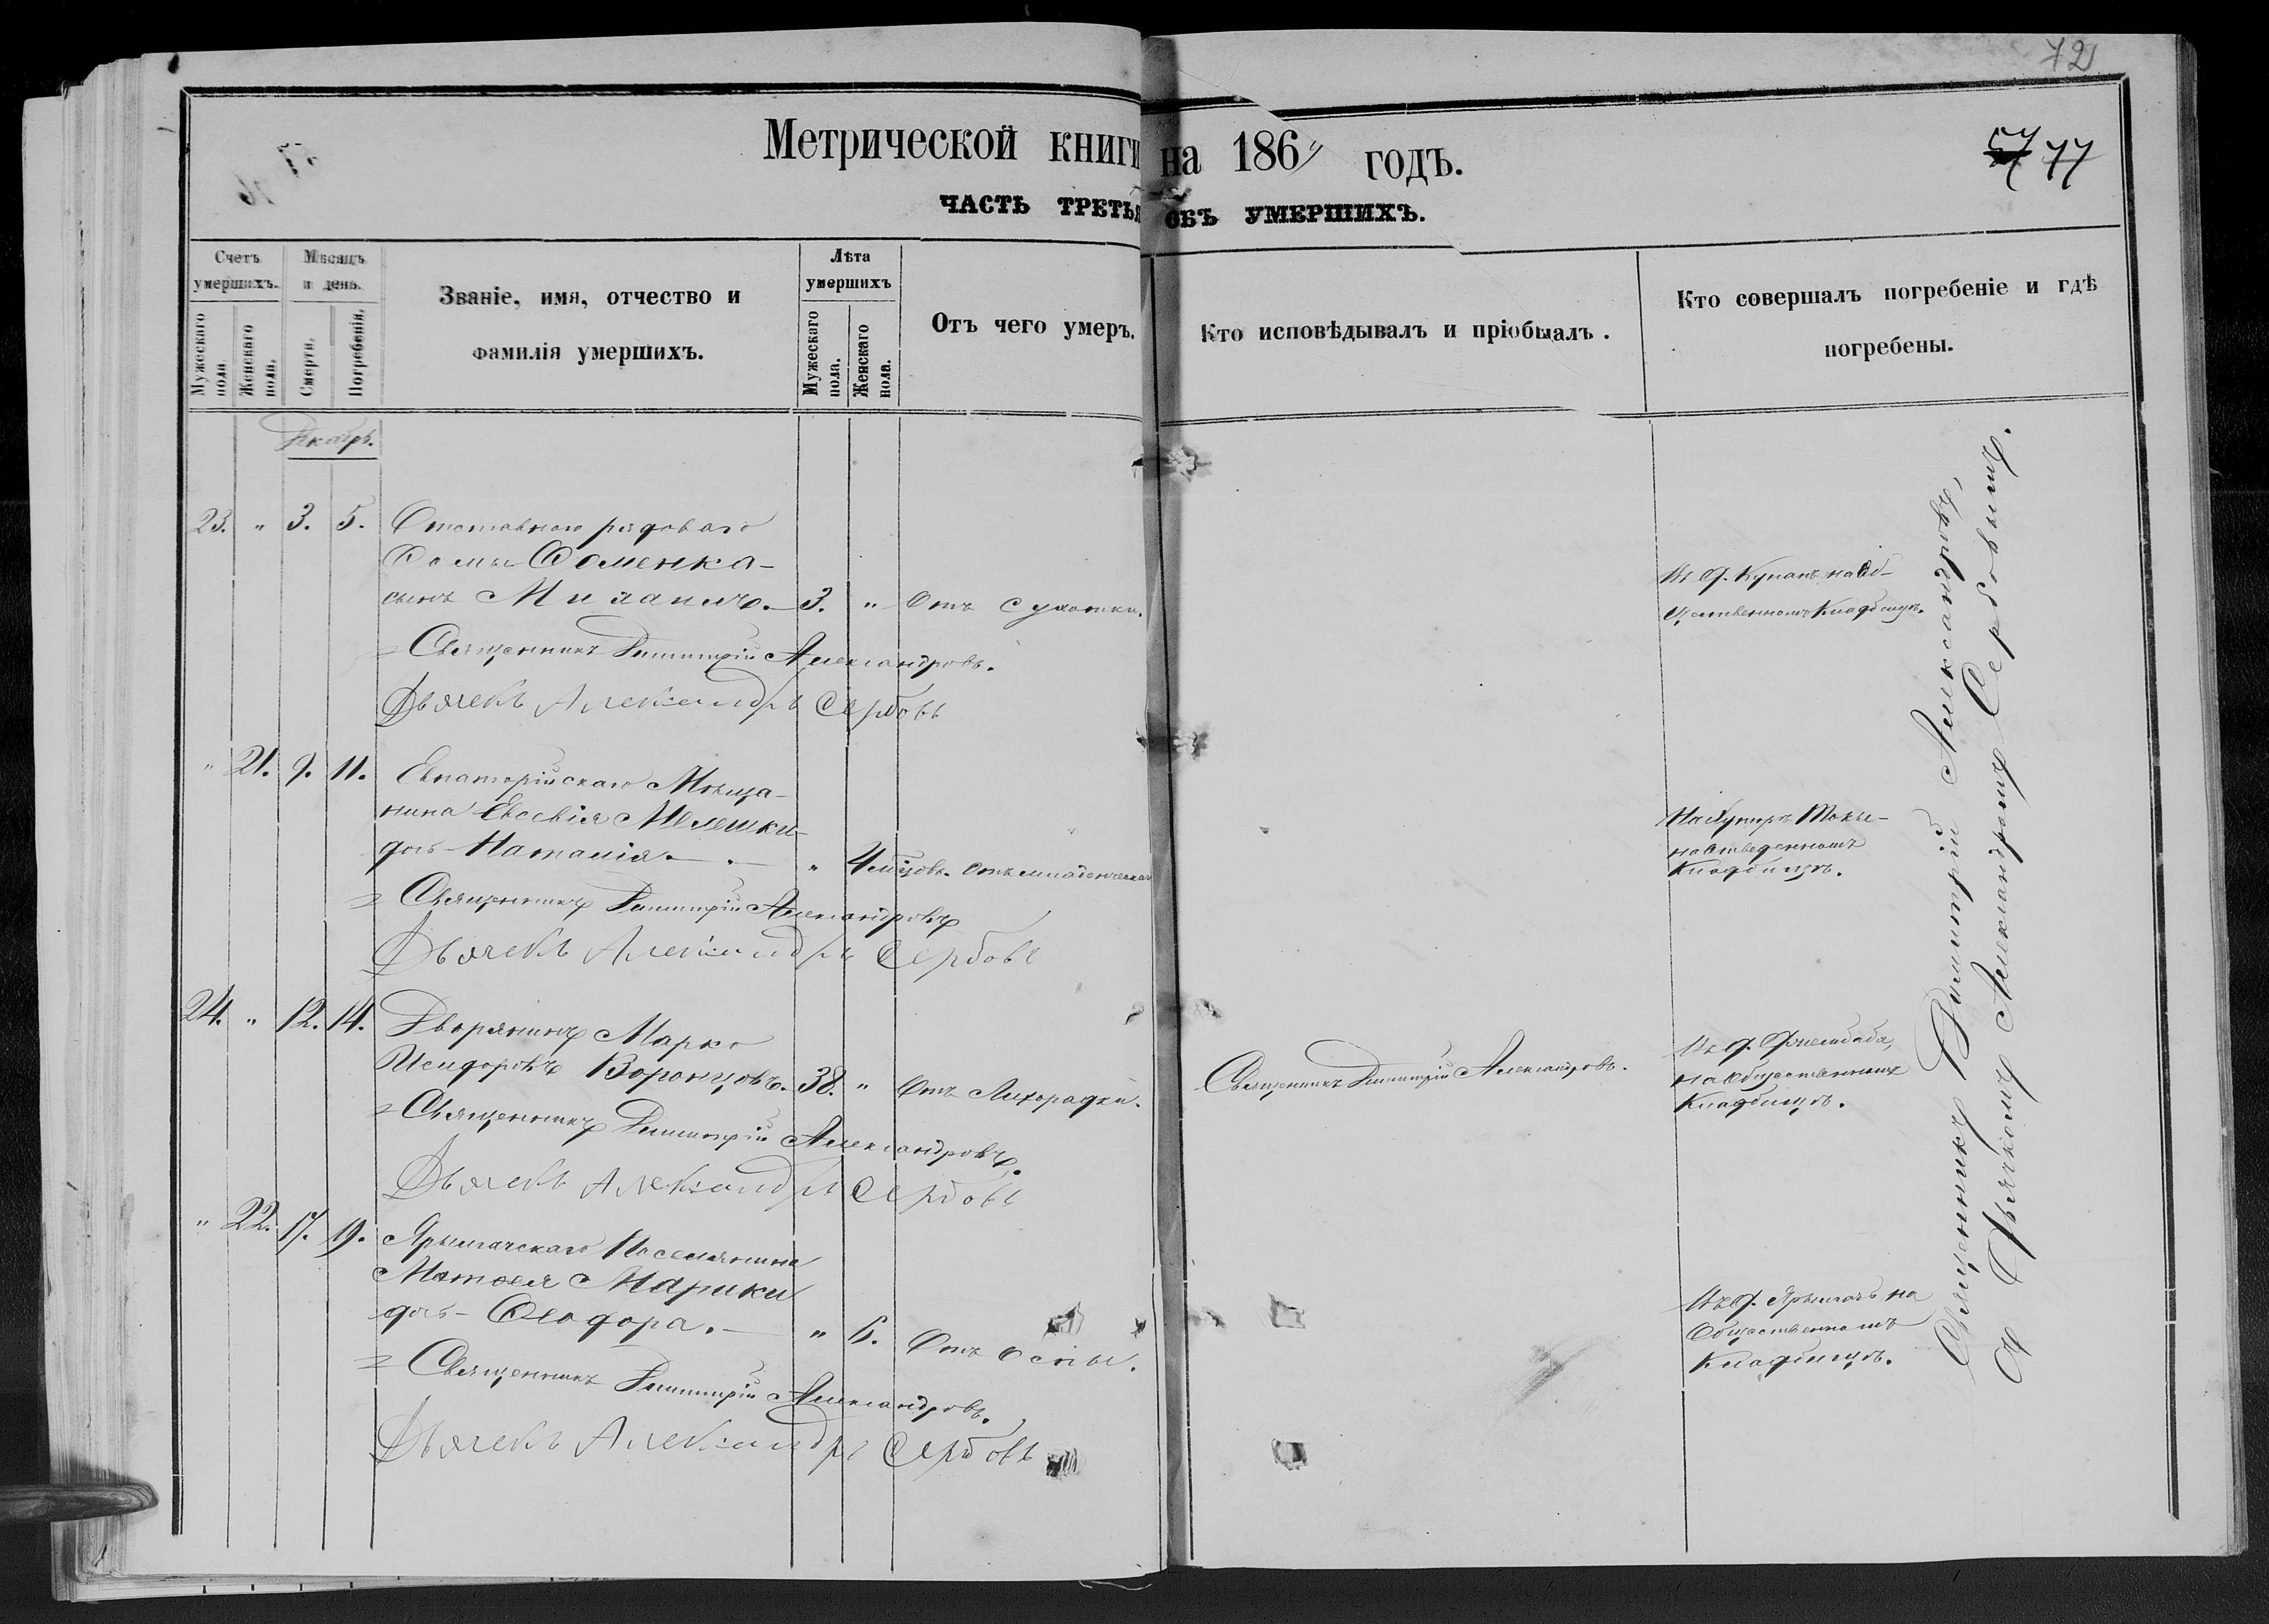 72
Метрической книги на 186 годъ.
57 77
ЧАСТЬ ТРЕТЬЯ ОБЪ УМЕРШИХЪ.
Счетъ умершихъ.
Мужескаго пола.
Женскаго пола.
Мѣсяцъ и день.
Смерти.
Погребенія.
Званіе, имя, отчество и
фамилія умершихъ.
Лѣта умершихъ
Мужескаго пола.
Женскаго пола.
Отъ чего умеръ.
Кто исповѣдывалъ и пріобщалъ.
Кто совершалъ погребеніе и гдѣ
погребены.
Декабрь.
23. " 3. 5. Отставнаго рядоваго
Ѳомы Ѳоменка
сынъ Михаилъ. 3. " Отъ сухотки.
Въ д. на Об-
щественномъ Кладбищѣ.
Священникъ Димитрій Александровъ.
Дьячекъ Александръ Сербовъ
" 21. 9. 11. Евпаторійскаго Мѣща-
нина Евсевія Мелешки
дочь Наталія. " 4 мѣсцовъ. Отъ младенческой
На
на отведенномъ
Кладбищѣ.
Священникъ Димитрій Александровъ
Дьячекъ Александръ Сербовъ
24. " 12. 14. Дворянинъ Марко
Исидоровъ Воронцовъ. 38. " Отъ Лихорадки.
Священникъ Димитрій Александровъ.
Въ д.
на Общественномъ
Кладбищѣ.
Священникъ Димитрій Александровъ.
Дьячекъ Александръ Сербовъ
" 22. 17. 19. Ярылгачскаго Поселянина
Матѳея Марики
дочь Ѳеодора. " 6. Отъ оспы.
Въ д. Ярылгачъ на
Общественномъ
Кладбищѣ.
Священникъ Димитрій Александровъ.
Дьячекъ Александръ Сербовъ
Священникъ Димитрій Александровъ,
съ Дьячкомъ Александромъ Сербовымъ.